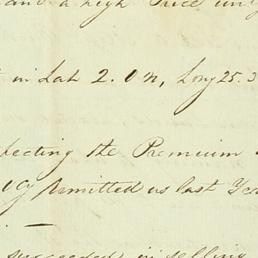 and a high Price
in Lat 2.0 n, Long 25.3
pecting the Premium
mitted us last
succeeded in selling